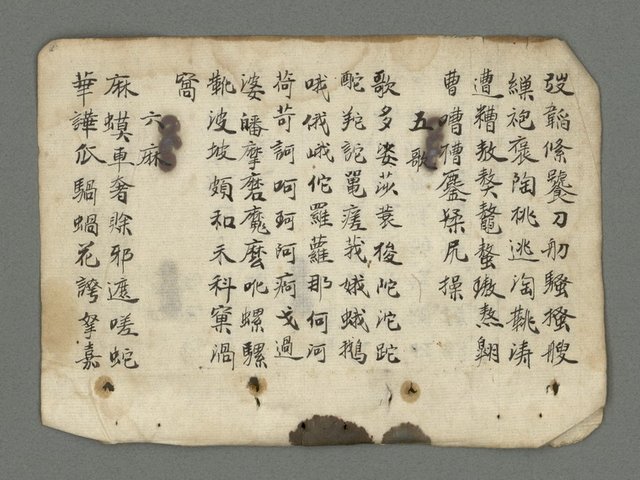 弢韜絛饕刀舠騷搔艘
繅袍褒陶桃逃淘鞉濤
遭糟敖獒鼇螯璈熬翱
曹嘈槽鏖猱尻操
五歌
歌多娑莎蓑梭陀沱跎
酡羓詑鼉瘥莪娥蛾鵝
哦俄峨佗羅蘿那何河
荷苛訶呵珂阿痾戈過
婆皤摩磨魔麼吪螺騾
靴波坡頗和禾科窠渦
窩
六麻
麻蟆車奢賒邪遮嗟蛇
華譁瓜騧蝸花誇拏嘉